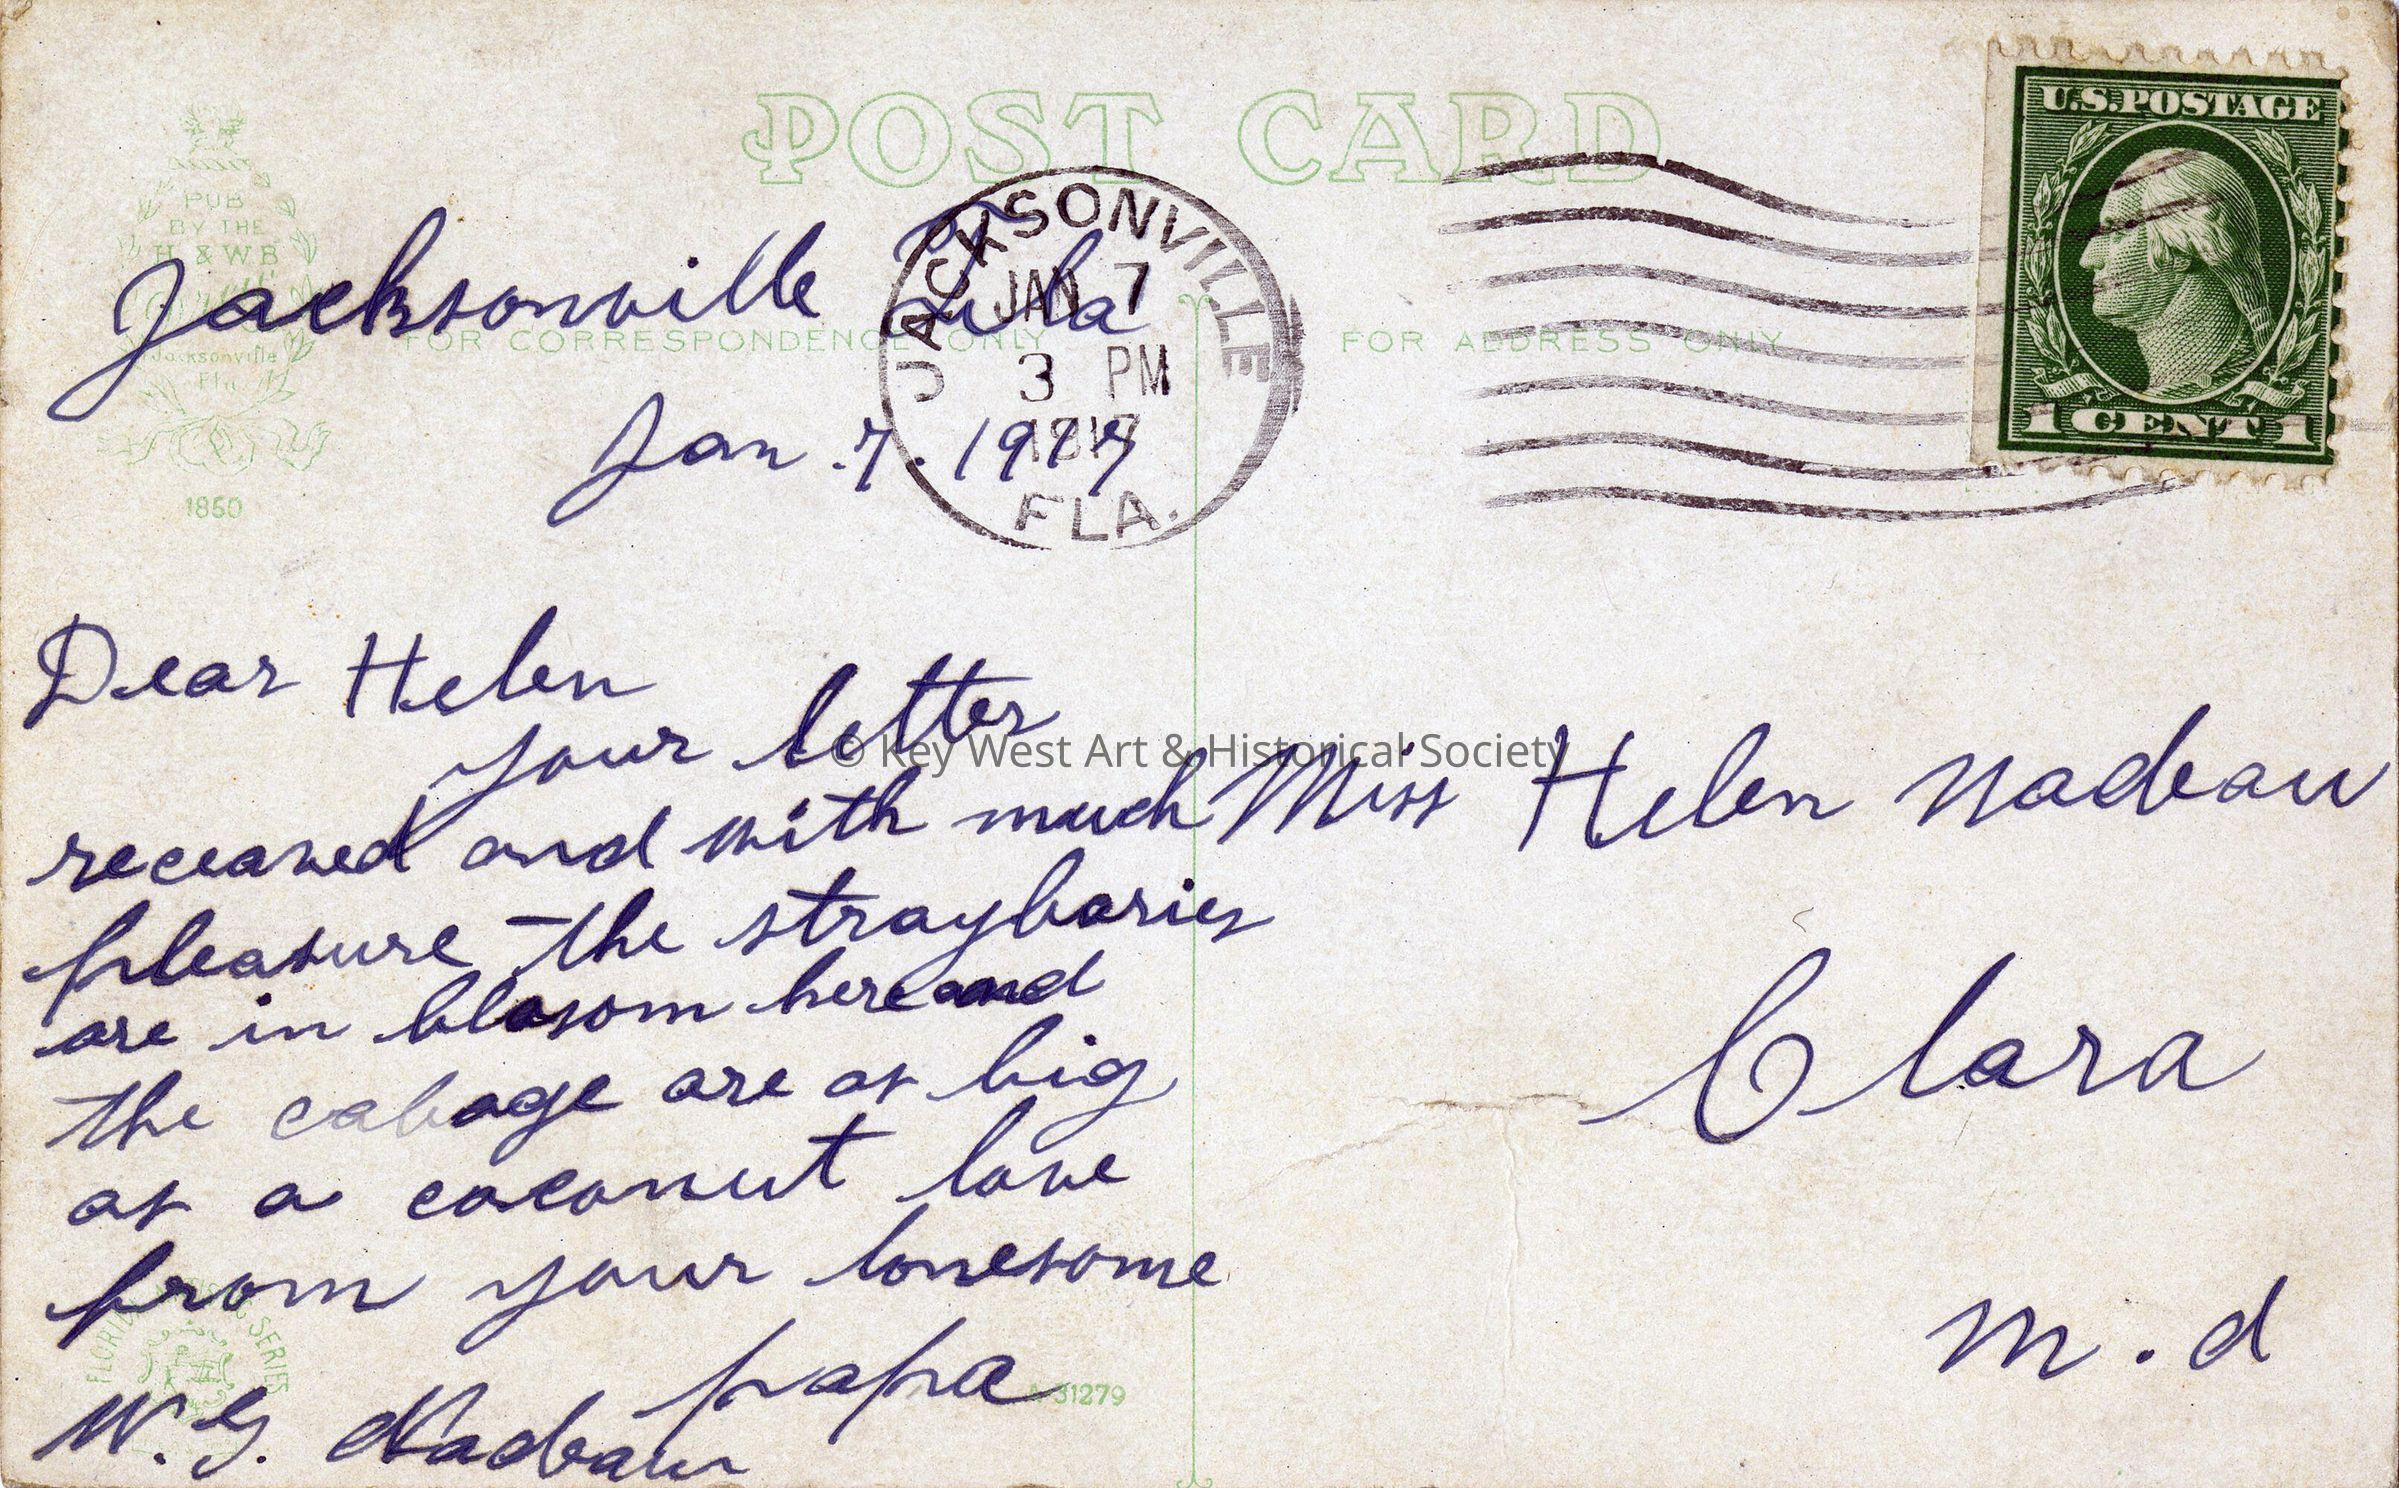 POST CARD
PUB
BY THE
H & W B
Jacksonville
Fla
1850
FOR CORRESPONDENCE ONLY
FOR ADDRESS ONLY
JACKSONVILLE
JAN 7
3 PM
FLA.
U.S. POSTAGE
1 CENT 1
Jacksonville Fla
Jan. 7. 1917
Dear Helen
your letter
receaved and with much
pleasure the straybaries
are in blosom here and
the cabage are as big
as a coconut love
from your lonesome
papa
W. G. Nadeau
Miss Helen Nadeau
Clara
M. d
© Key West Art & Historical Society
SERIES
A-31279